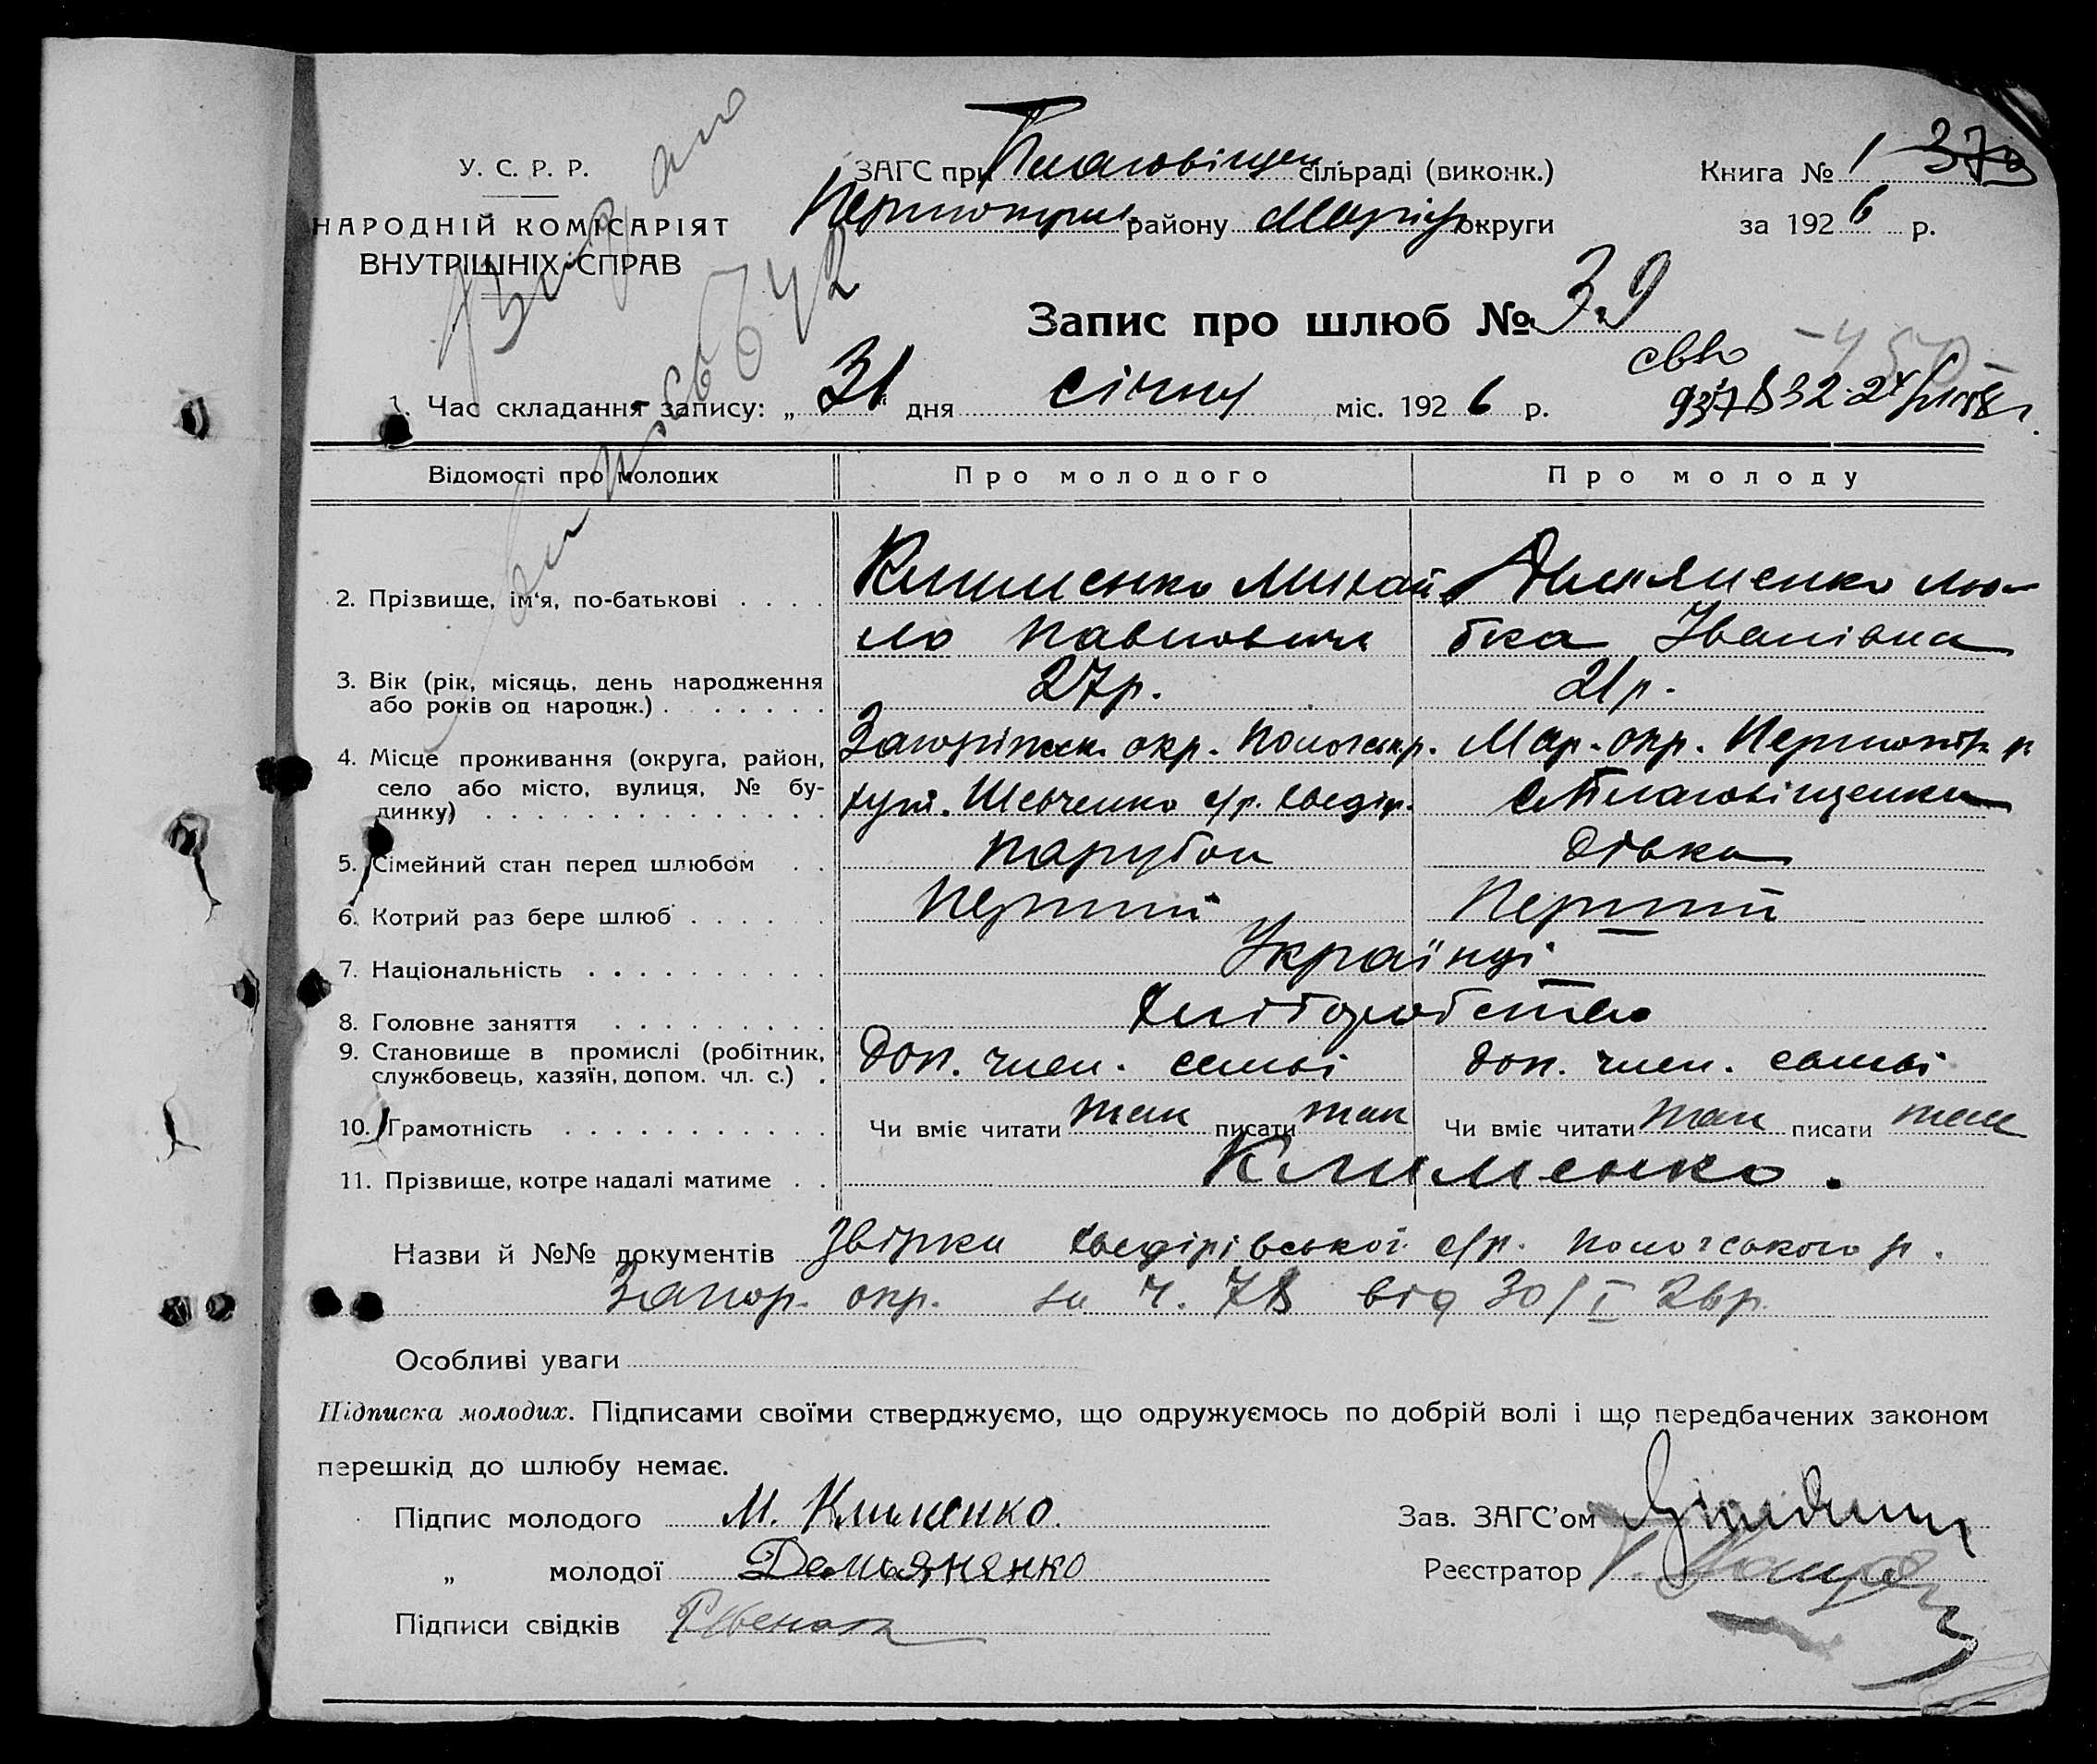 У. С. Р. Р.
НАРОДНІЙ КОМІСАРІЯТ
ВНУТРІШНІХ СПРАВ
ЗАГС при Благовіщен. сільраді (виконк.)
району Маріуп округи
Книга № 1 379
за 1926 р.
Запис про шлюб № 39
1. Час складання запису: „31" дня січня міс. 1926 р.
Відомості про молодих Про молодого Про молоду
2. Прізвище, ім'я, по-батькові . . . . Клименко Михай- Демяненко Лю-
ло Павлович бка Іванівна
3. Вік (рік, місяць, день народження 27р. 21р.
або років од народж.) . . . . . . .
4. Місце проживання (округа, район, окр. Мар. окр.
село або місто, вулиця, № бу- хут. Шевченко с/р. с. Благовіщенка
динку) . . . . . . . . . . . . . .
5. Сімейний стан перед шлюбом . . парубок дівка
6. Котрий раз бере шлюб . . . . . Перший Перший
7. Національність . . . . . . . . . . Українці
8. Головне заняття . . . . . . . . . Хліборобство
9. Становище в промислі (робітник, Доп. член. семьі доп. член. семьі
службовець, хазяїн, допом. чл. с.) .
10. Грамотність . . . . . . . . . . . Чи вміє читати так писати так Чи вміє читати так писати так
11. Прізвище, котре надалі матиме . . Клименко.
Назви й №№ документів с/р. Пологського р.
Запор. окр. за ч. 78 від 30/I 26р.
Особливі уваги
Підписка молодих. Підписами своїми стверджуємо, що одружуємось по добрій волі і що передбачених законом
перешкід до шлюбу немає.
Підпис молодого М. Клименко.
„ молодої Демьяненко
Підписи свідків
Зав. ЗАГС'ом
Реєстратор